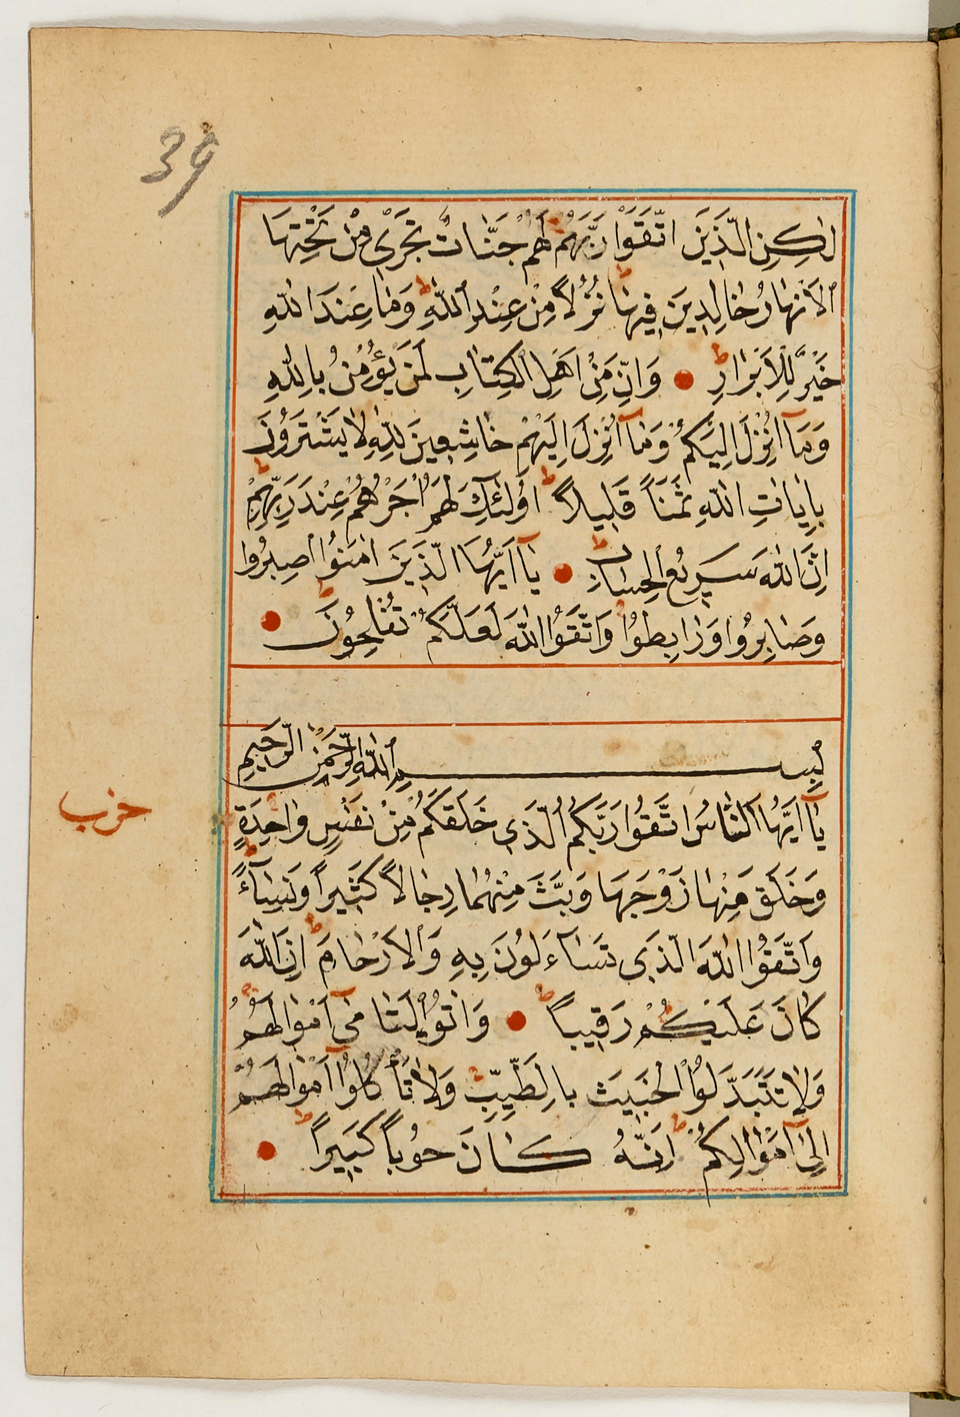 39
لٰكِنِ الَّذِينَ اتَّقَوْا رَبَّهُمْ لَهُمْ جَنَّاتٌ تَجْرِى مِنْ تَحْتِهَا
الْاَنْهَارُ خَالِدِينَ فِيهَا نُزُلًا مِنْ عِنْدِ اللّٰهِ ط وَمَا عِنْدَ اللّٰهِ
خَيْرٌ لِلْاَبْرَارِ ط وَاِنَّ مِنْ اَهْلِ الْكِتَابِ لَمَنْ يُؤْمِنُ بِاللّٰهِ
وَمَآ اُنْزِلَ اِلَيْكُمْ وَمَآ اُنْزِلَ اِلَيْهِمْ خَاشِعِينَ لِلّٰهِ لَا يَشْتَرُونَ
بِاٰيَاتِ اللّٰهِ ثَمَنًا قَلِيلًا ط اُولٰئِكَ لَهُمْ اَجْرُهُمْ عِنْدَ رَبِّهِمْ ط
اِنَّ اللّٰهَ سَرِيعُ الْحِسَابِ ط يَآ اَيُّهَا الَّذِينَ اٰمَنُوا اصْبِرُوا
وَصَابِرُوا وَرَابِطُوا وَاتَّقُوا اللّٰهَ لَعَلَّكُمْ تُفْلِحُونَ ط
بِسْمِ اللّٰهِ الرَّحْمٰنِ الرَّحِيمِ
حزب
يَآ اَيُّهَا النَّاسُ اتَّقُوا رَبَّكُمُ الَّذِى خَلَقَكُمْ مِنْ نَفْسٍ وَاحِدَةٍ
وَخَلَقَ مِنْهَا زَوْجَهَا وَبَثَّ مِنْهُمَا رِجَالًا كَثِيرًا وَنِسَآءً ط
وَاتَّقُوا اللّٰهَ الَّذِى تَسَآءَلُونَ بِهِ وَالْاَرْحَامَ ط اِنَّ اللّٰهَ
كَانَ عَلَيْكُمْ رَقِيبًا ط وَاٰتُوا الْيَتَامٰىٓ اَمْوَالَهُمْ
وَلَا تَتَبَدَّلُوا الْخَبِيثَ بِالطَّيِّبِ وَلَا تَأْكُلُوٓا اَمْوَالَهُمْ
اِلٰىٓ اَمْوَالِكُمْ ط اِنَّهُ كَانَ حُوبًا كَبِيرًا ط